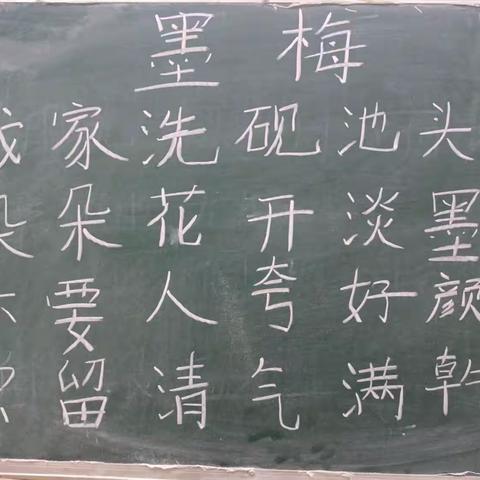 墨梅
我家洗砚池头
朵朵花开淡墨
不要人夸好颜
留清气满乾